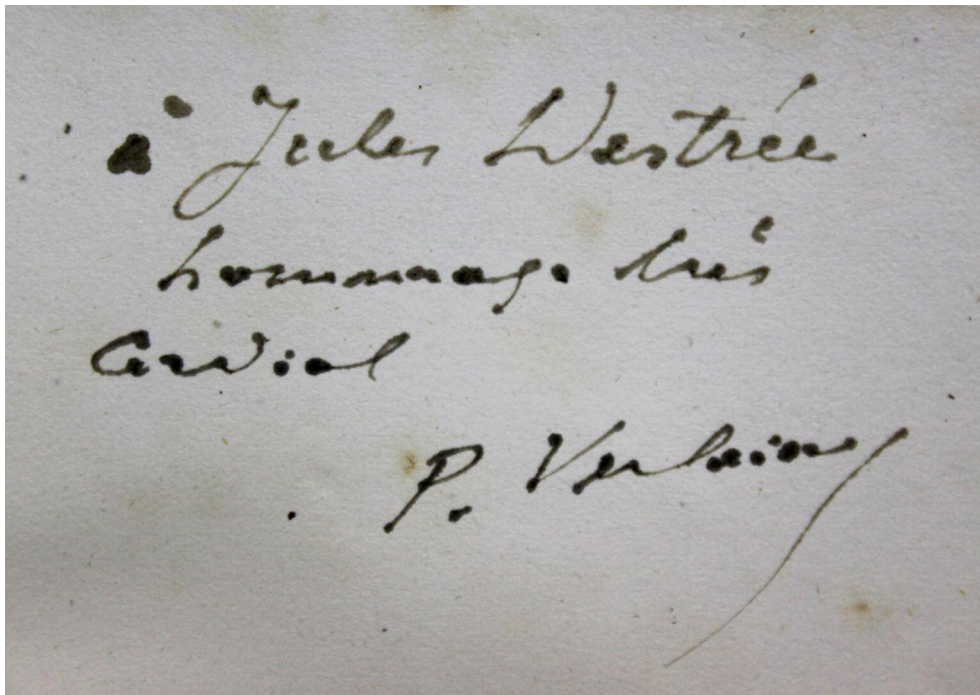 à Jules Destrée
hommage très
cordial
P. Verlaine